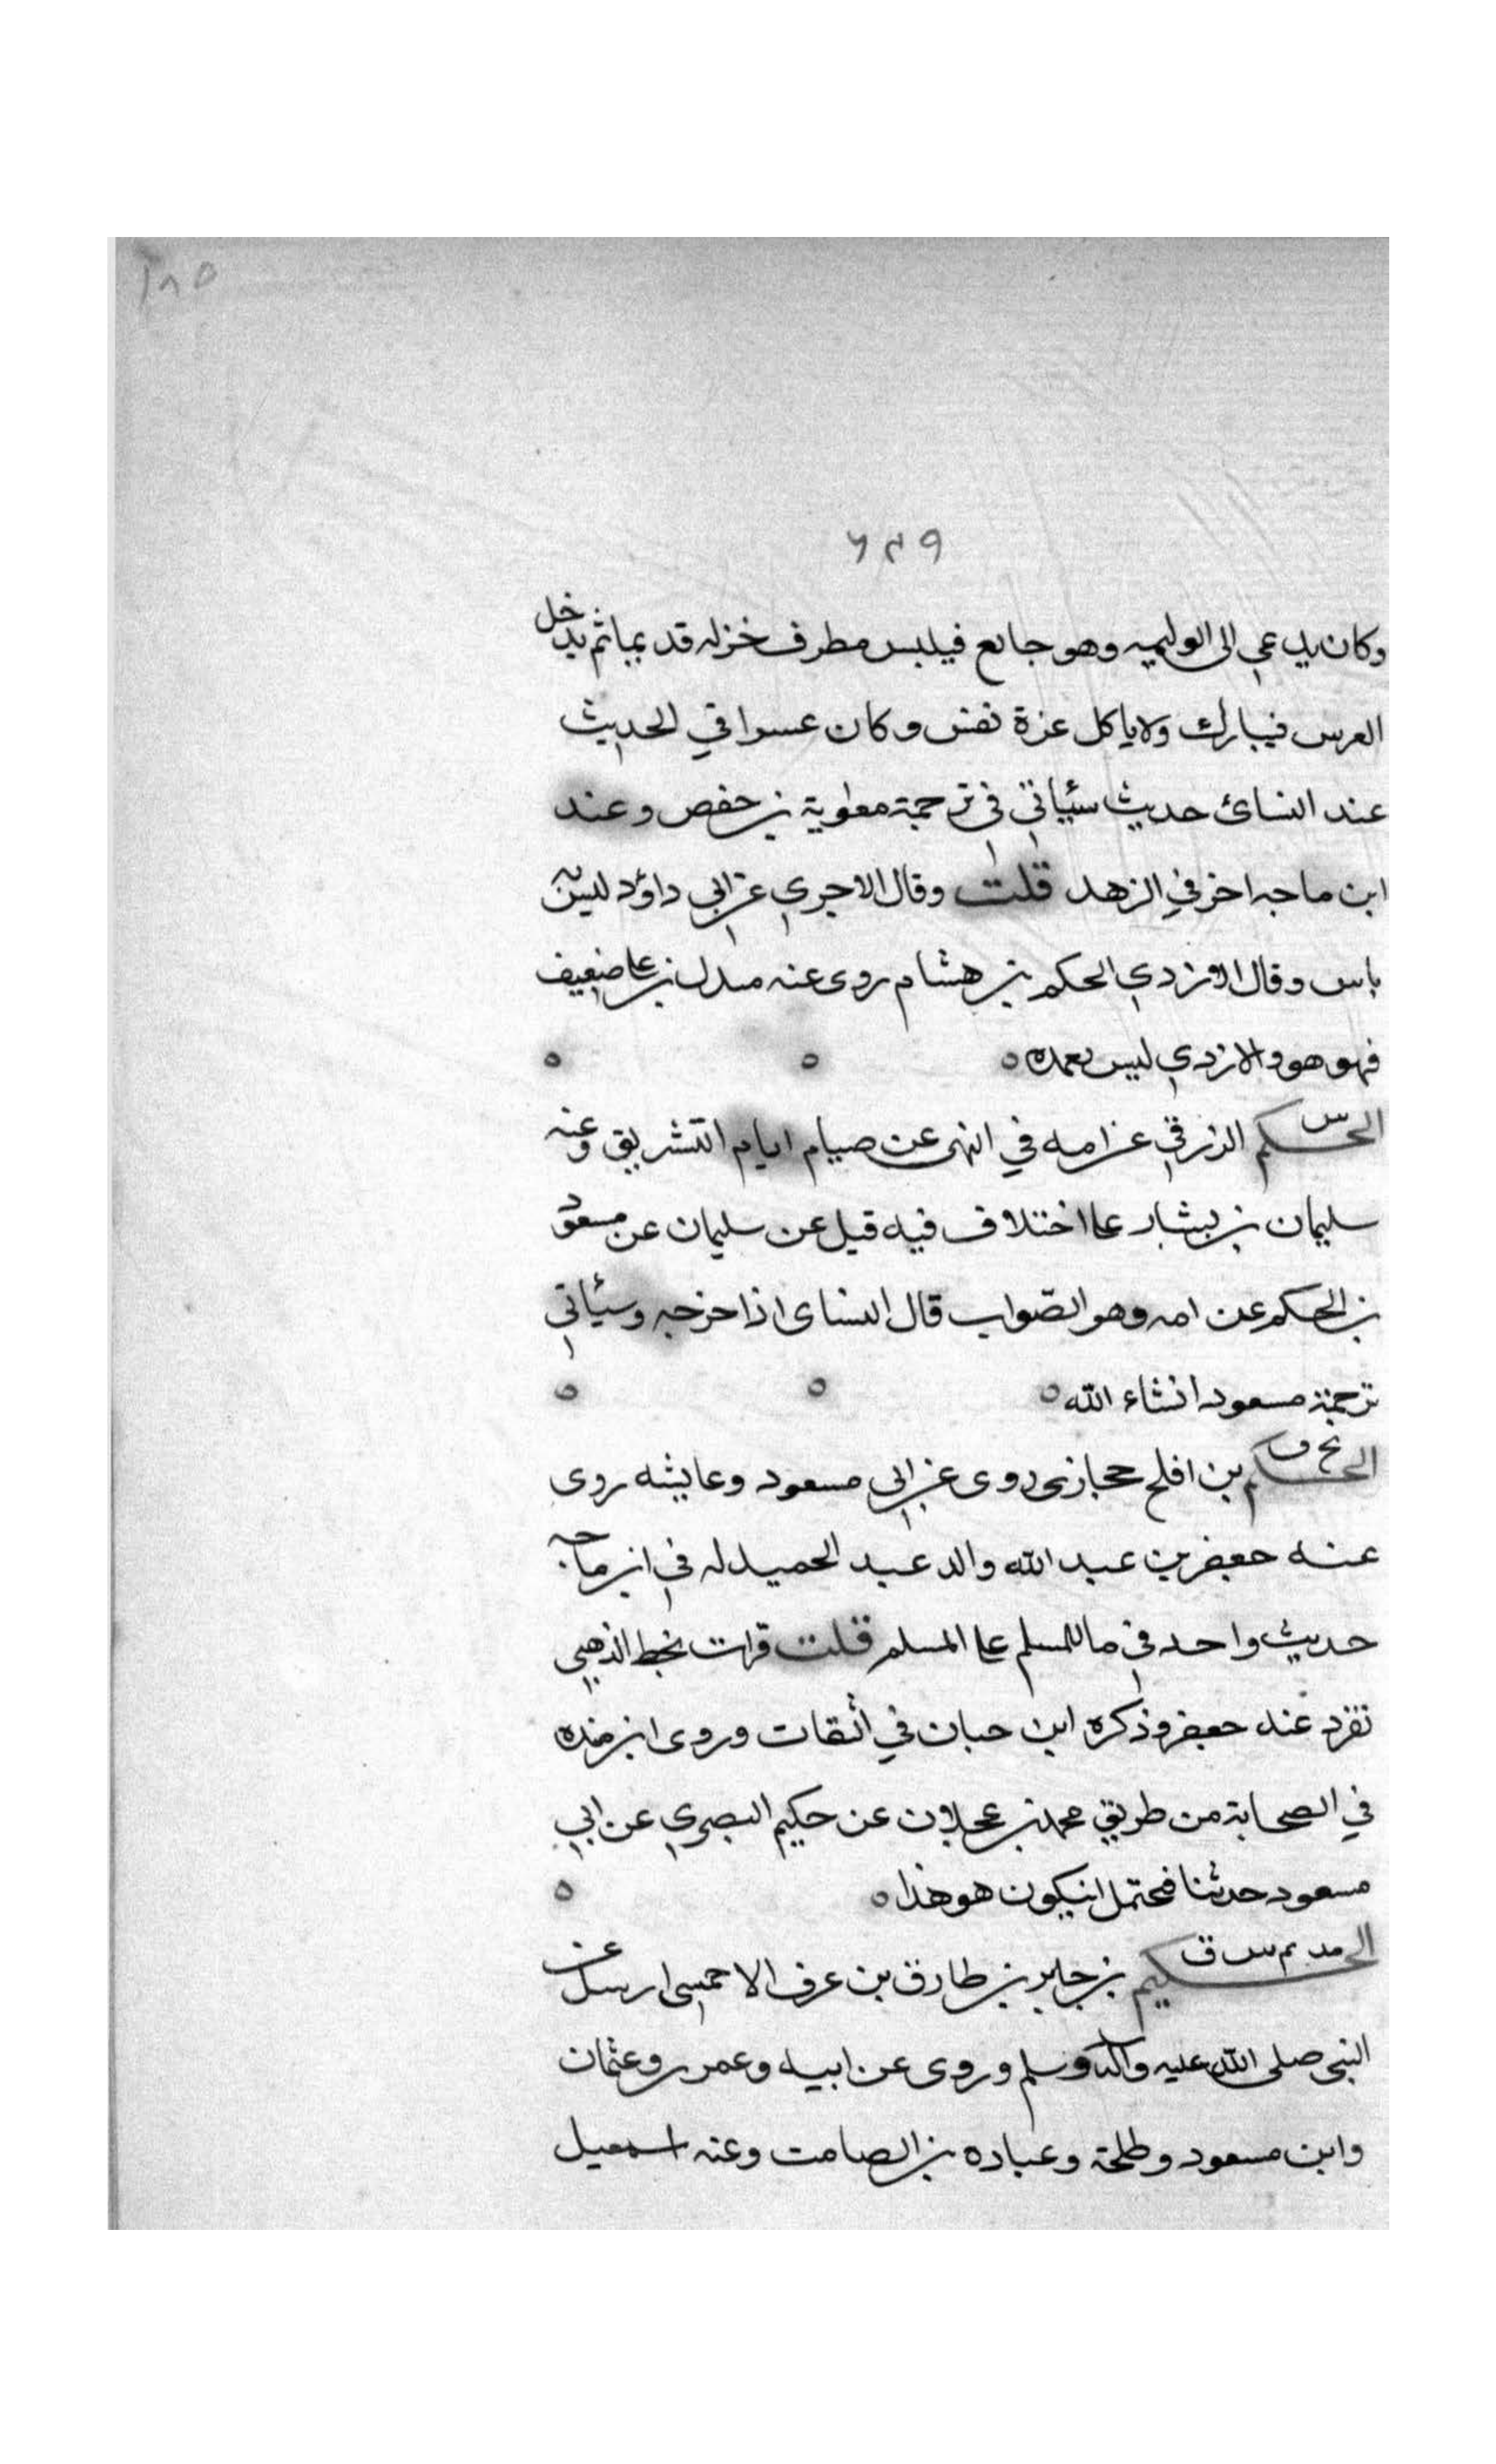 ١٨٥
٦٢٩
وكان يدعى الى الوليمه وهو جايع فيلبس مطرف خز له قديما ثم يدخل
العرس فيبارك ولا ياكل عزة نفس وكان عسرا في الحديث
عند النسائ حديث سئاتي في ترجمة معٰوية بن حفص وعند
ابن ماجه اخر في الزهد قلت وقال الاجري عن ابي داؤد ليس به
باس وقال الازدي الحكم بن هشام روى عنه مندل بن علي ضعيف
فهو هو والازدي ليس بعمده ه ه ه
الحكم س الزرقي عن امه في النهى عن صيام ايام التشريق وعنه
سليمان بن بشار على اختلاف فيه قيل عن سليمان عن مسعود
بن الحكم عن امه وهو الصّواب قال النساى اذا خرجه وسئاتي
ترجمة مسعود انشاء الله ه ه ه
الحكم بخ ق بن افلح حجازى روى عن ابي مسعود وعايشه روى
عنه جعفر بن عبد الله والد عبد الحميد له في ابن ماجه
حديث واحد في ما للمسلم على المسلم قلت قرات بخط الذهبي
تفرد عنه جعفر وذكره ابن حبان في الثقات وروى ابن منده
في الصحابة من طريق محمد بن عجلان عن حكيم البصري عن ابي
مسعود حدثنا فحتمل انيكون هو هذا ه ه
الحكيم مد تم س ق بن جابر بن طارق بن عوف الاحمسي ارسل عن
النبى صلى الله عليه وآله وسلم وروى عن ابيه وعمر وعثمان
وابن مسعود وطلحة وعباده بن الصامت وعنه اسمعيل